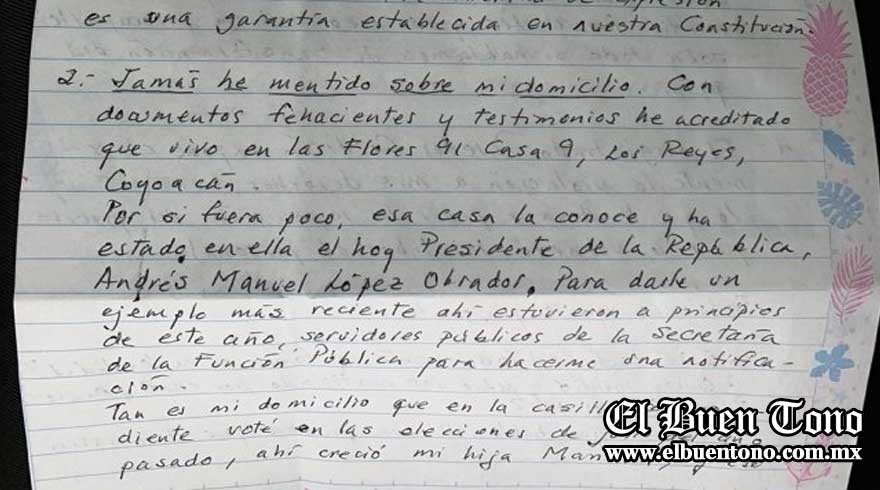 es una garantía establecida en nuestra Constitución.
2.- Jamás he mentido sobre mi domicilio. Con
documentos fehacientes y testimonios he acreditado
que vivo en las Flores 91 Casa 9, Los Reyes,
Coyoacán.
Por si fuera poco, esa casa la conoce y ha
estado en ella el hoy Presidente de la República,
Andrés Manuel López Obrador. Para darle un
ejemplo más reciente ahí estuvieron a principios
de este año, servidores públicos de la Secretaría
de la Función Pública para hacerme una notifica-
ción.
Tan es mi domicilio que en la
diente voté en las elecciones de
pasado, ahí creció mi hija
El Buen Tono
www.elbuentono.com.mx